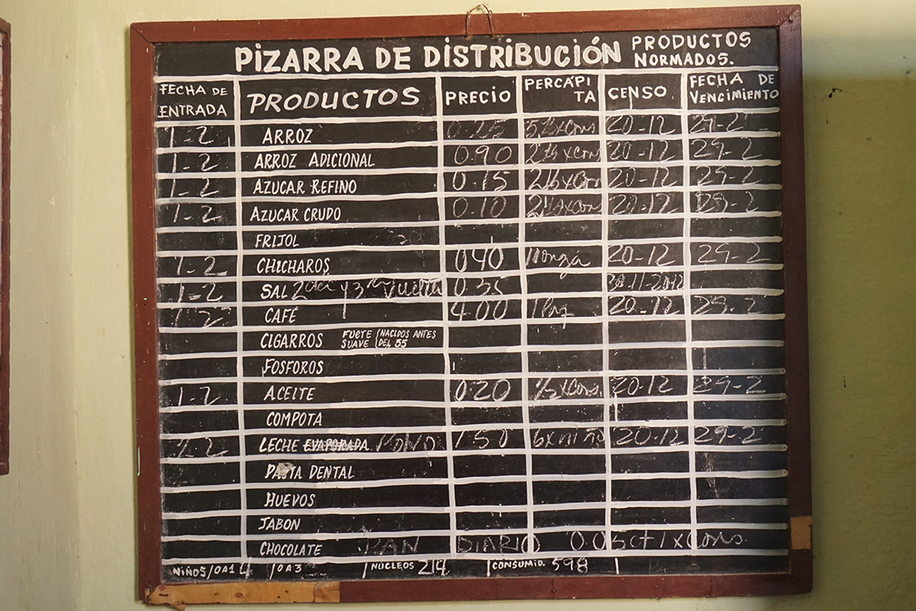 PIZARRA DE DISTRIBUCIÓN PRODUCTOS NORMADOS.
FECHA DE ENTRADA PRODUCTOS PRECIO PERCÁPITA CENSO. FECHA DE VENCIMIENTO
1-2 ARROZ 20-12 29-2
1-2 ARROZ ADICIONAL 0.90 20-12 29-2
1-2 AZUCAR REFINO 0.15 20-12 29-2
1-2 AZUCAR CRUDO 0.10 20-12 29-2
FRIJOL
1-2 CHICHAROS 040 20-12 29-2
1-2 SAL 2da y 3ra Vuelta 0.35
1-2 CAFÉ 4.00 20-12 29-2
CIGARROS FUETE SUAVE (NACIDOS ANTES DEL 55
FOSFOROS
1-2 ACEITE 020 20-12 29-2
COMPOTA
2-2 LECHE EVAPORADA 150 6x niño 20-12 29-2
PASTA DENTAL
HUEVOS
JABON
CHOCOLATE PAN DIARIO 0.05ct 1xCons.
NIÑOS/0A1 4 0A3 NÚCLEOS 214 CONSUMID. 598